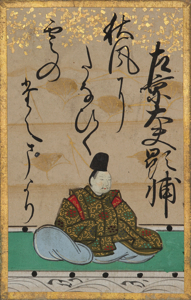 左京大夫顕輔
秋風に
たなひく
雲の
たえまより